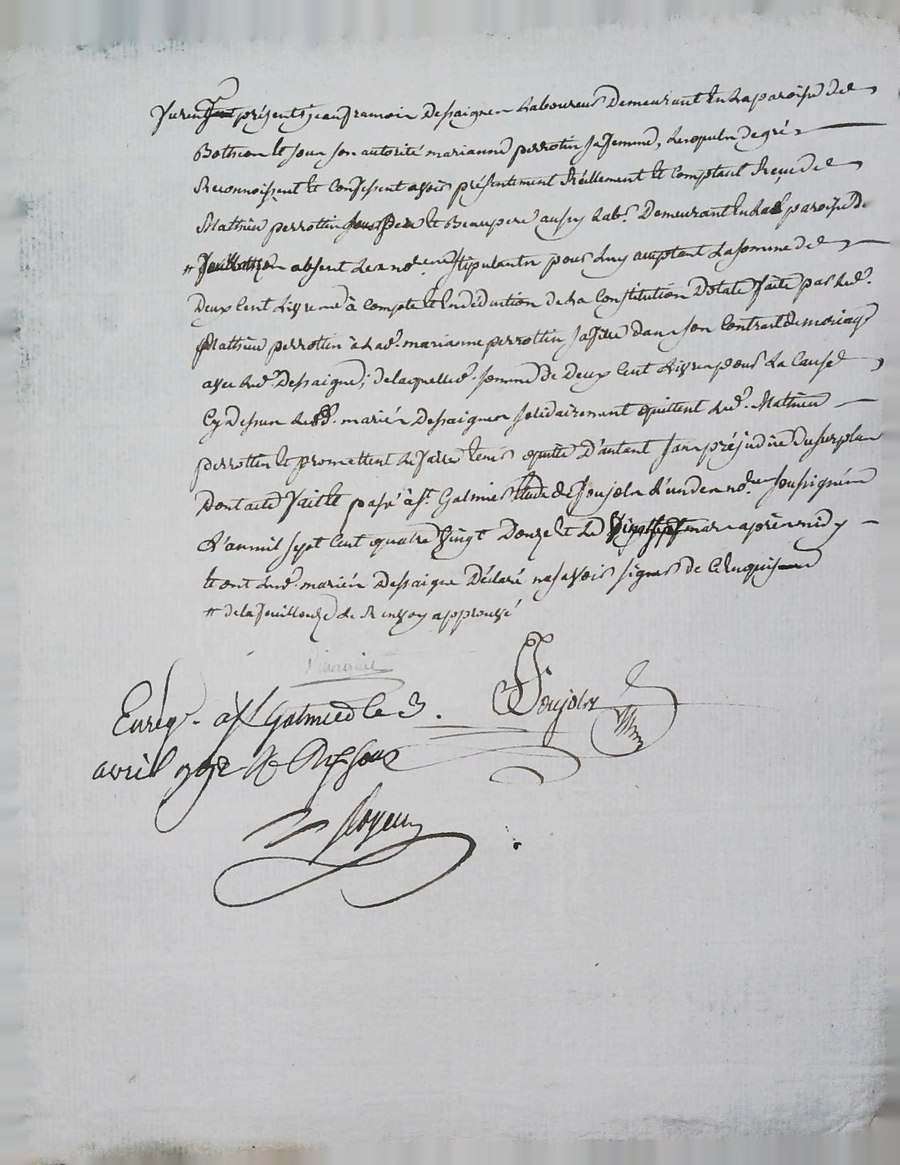 furent présents jean francoin Dessaignes Laboureur Demeurant En La paroisse de
Botheon Et sous son autorité marianne perrottin sa femme, Lesquels de gré
Reconnoissent Et Confessent avoir présentement Réellement Et Comptant Reçu de
Mathieu perrottin Et Beaupere aussy Lab.r Demeurant En La paroisse De
# absent Les no.res Stipulants pour Luy acceptant La somme de
Deux Cent Livres à Compte Et En déduction de La Constitution Dotale faite par Led.
Mathieu perrottin à Lad. marianne perrottin sa fille dans son Contract de mariage
avec Led. Dessaigne; de laquelle d. somme de Deux Cent Livres pour La Cause
Cy Dessus Lesd. mariés Dessaignes solidairement quittent Led. Mathieu
perrottin Et promettent Le faire tenir quitte D'autant sans préjudice Du surplus
Dont acte fait Et passé à St. Galmier Etude de Soujols L'un des no.res soussignés
L'an mil sept cent quatre vingt Douze Et Le mars après midy
Et ont Lesd. mariés Dessaigne Déclaré ne savoir signer de Ce Enquis
# de la fouillouze Le Renvoy approuvé
Soujols
Enrég. à St Galmier le 3.
avril 1792 R.